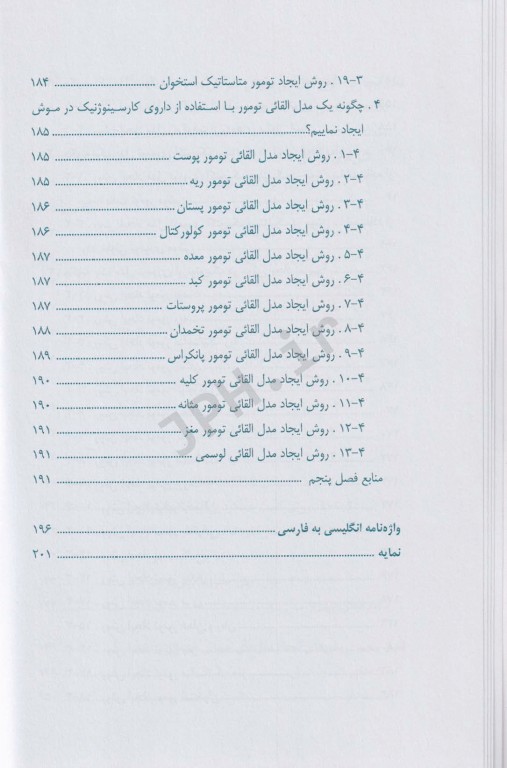 ۱۹-۳ . روش ایجاد تومور متاستاتیک استخوان ........ ۱۸۴
۴ . چگونه یک مدل القائی تومور با استفاده از داروی کارسینوژنیک در موش
ایجاد نماییم؟ ........ ۱۸۵
۱-۴ . روش ایجاد مدل القائی تومور پوست ........ ۱۸۵
۲-۴ . روش ایجاد مدل القائی تومور ریه ........ ۱۸۵
۳-۴ . روش ایجاد مدل القائی تومور پستان ........ ۱۸۶
۴-۴ . روش ایجاد مدل القائی تومور کولورکتال ........ ۱۸۶
۵-۴ . روش ایجاد مدل القائی تومور معده ........ ۱۸۷
۶-۴ . روش ایجاد مدل القائی تومور کبد ........ ۱۸۷
۷-۴ . روش ایجاد مدل القائی تومور پروستات ........ ۱۸۷
۸-۴ . روش ایجاد مدل القائی تومور تخمدان ........ ۱۸۸
۹-۴ . روش ایجاد مدل القائی تومور پانکراس ........ ۱۸۹
۱۰-۴ . روش ایجاد مدل القائی تومور کلیه ........ ۱۹۰
۱۱-۴ . روش ایجاد مدل القائی تومور مثانه ........ ۱۹۰
۱۲-۴ . روش ایجاد مدل القائی تومور مغز ........ ۱۹۱
۱۳-۴ . روش ایجاد مدل القائی لوسمی ........ ۱۹۱
منابع فصل پنجم ........ ۱۹۱
واژه‌نامه انگلیسی به فارسی ........ ۱۹۶
نمایه ........ ۲۰۱
JPH.ir